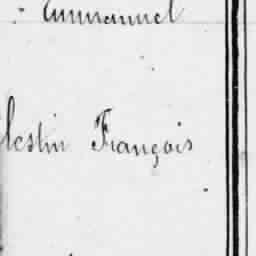 Emmanuel
lestin François